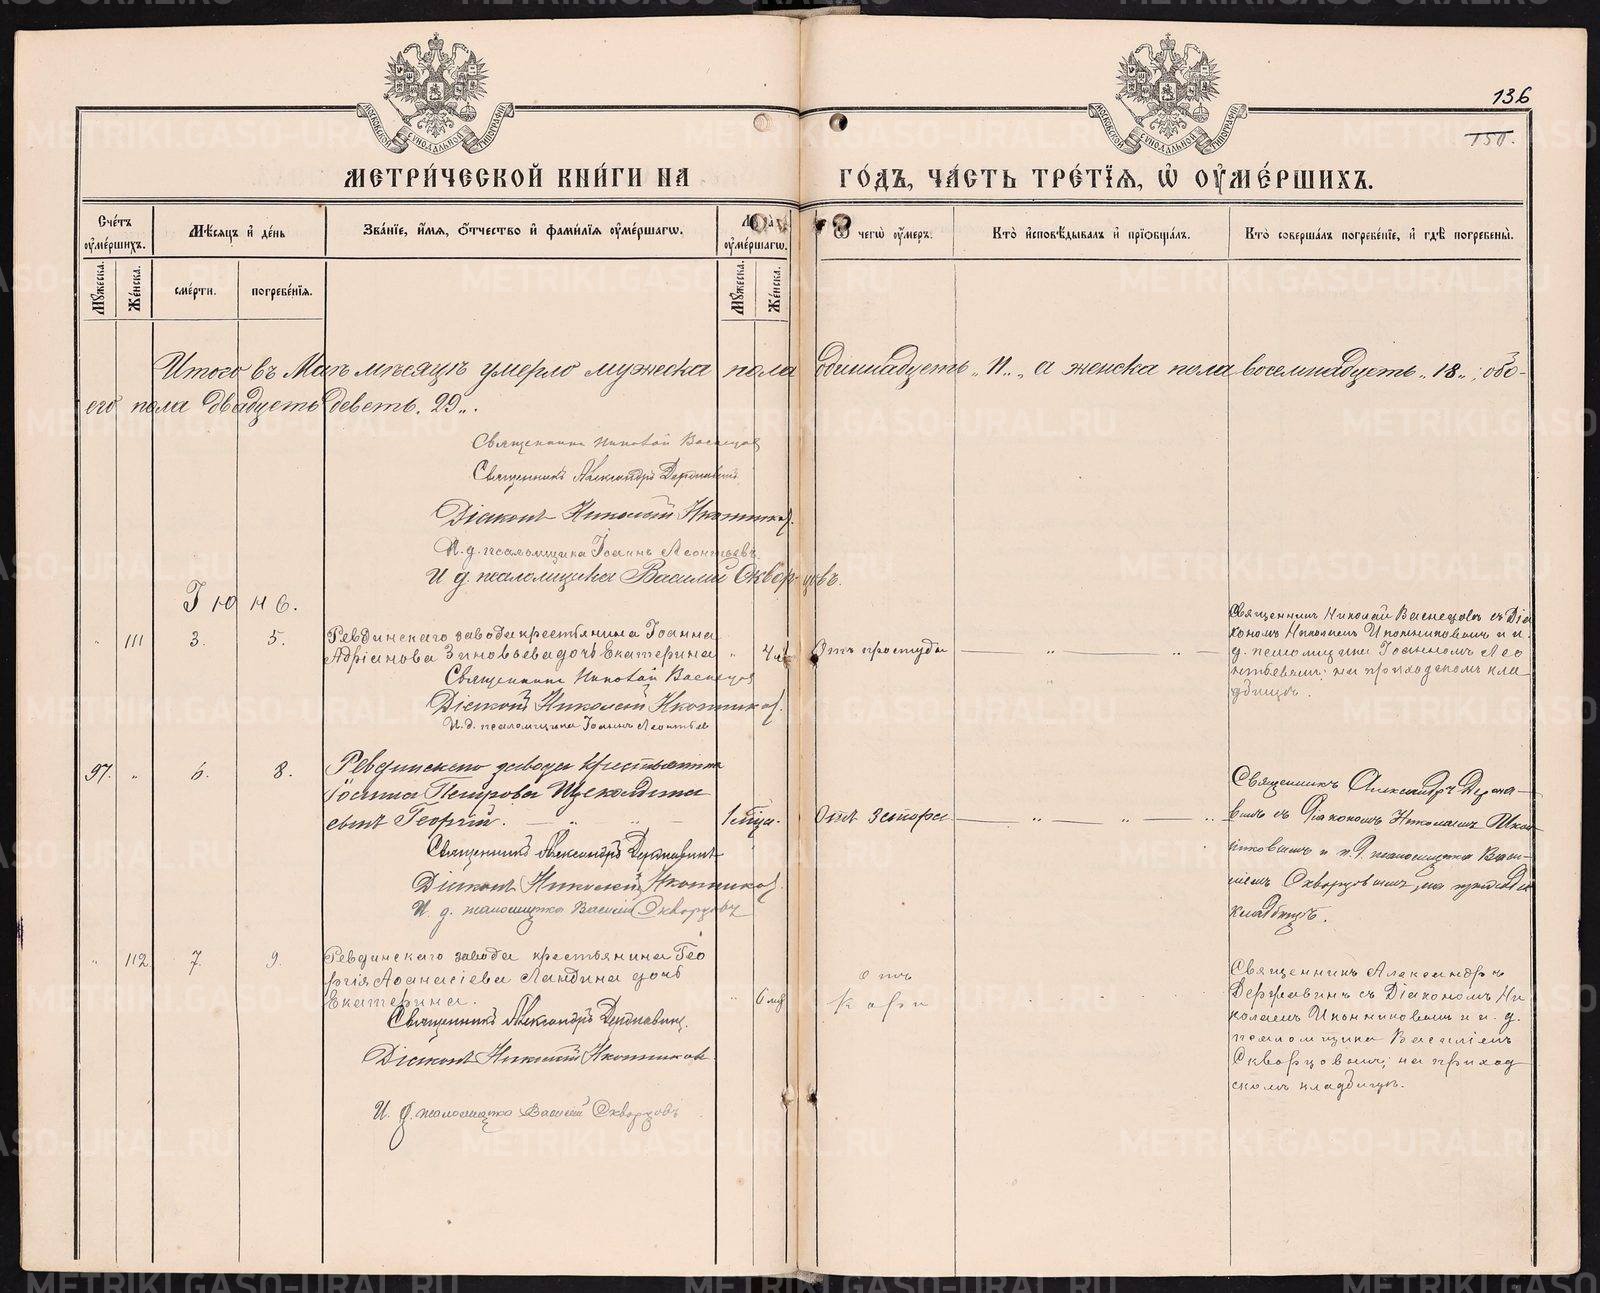 136
150.
МОСКОВСКОЙ СѴНОДАЛЬНОЙ ТИПОГРАФІИ
МОСКОВСКОЙ СѴНОДАЛЬНОЙ ТИПОГРАФІИ
МЕТРИ́ЧЕСКОЙ КНИ́ГИ НА ГО́ДЪ, ЧА́СТЬ ТРЕ́ТІЯ, Ѡ ОУМЕ́РШИХЪ.
Сче́тъ оуме́ршихъ.
Мѣсяцъ и де́нь
Зва́ніе, и́мя, о́тчество и фами́лія оуме́ршагѡ.
оуме́ршагѡ.
чегѡ̀ оу́меръ.
Кто̀ исповѣ́дывалъ и пріобща́лъ.
Кто̀ соверша́лъ погребе́ніе, и гдѣ̀ погребены̀.
Мꙋ́жеска.
Же́нска.
сме́рти.
погребе́нія.
Мꙋ́жеска.
Же́нска.
Итого въ Маѣ мѣсяцѣ умерло мужеска пола одиннадцать „11„, а женска пола восемнадцать „18„; обо-
его пола двадцать деветь. 29„.
Священникъ Николай Васнецов
Священникъ Александръ Державинъ
Діаконъ Николай Иконников.
И. д. псаломщика Іоаннъ Леонтьевъ.
И д. псаломщика Василій Скворцовъ.
Іюнь.
„ 111 3. 5. Ревдинскаго завода крестьянина Іоанна
Адріанова Зиновьева дочь Екатерина „ Отъ простуды — „ — „ —
Священникъ Николай Васнецов
Діаконъ Николай Иконников.
И. д. псаломщика Іоаннъ Леонтьев
Священникъ Николай Васнецовъ съ Діа
кономъ Николаемъ Иконниковымъ и и.
д. псаломщика Іоанномъ Лео
нтьевымъ; на приходскомъ кла
дбищѣ.
97. „ 6. 8. Ревдинскаго завода крестьянина
Іоанна Петрова Щекалдина
сынъ Георгій. — „ „ — Отъ запора — „ — „ — „
Священникъ Александръ Державинъ
Діаконъ Николай Иконников.
И. д. псаломщика Василій Скворцовъ
Священникъ Александръ Держа-
винъ съ Діакономъ Николаемъ Икон
никовымъ и и. д. псаломщика Васи-
ліемъ Скворцовымъ, на приход
кладбищѣ.
„ 112 7. 9. Ревдинскаго завода крестьянина Гео
ргія Аѳанасіева Ландина дочь
Екатерина. „ 6 мѣ Отъ
кори
Священникъ Александръ Державинъ.
Діаконъ Николай Иконников.
И. д. псаломщика Василій Скворцовъ
Священникъ Александръ
Державинъ съ Діакономъ Ни
колаемъ Иконниковымъ и и. д.
псаломщика Василіемъ
Скворцовымъ; на приход
скомъ кладбищѣ.
METRIKI.GASO-URAL.RU